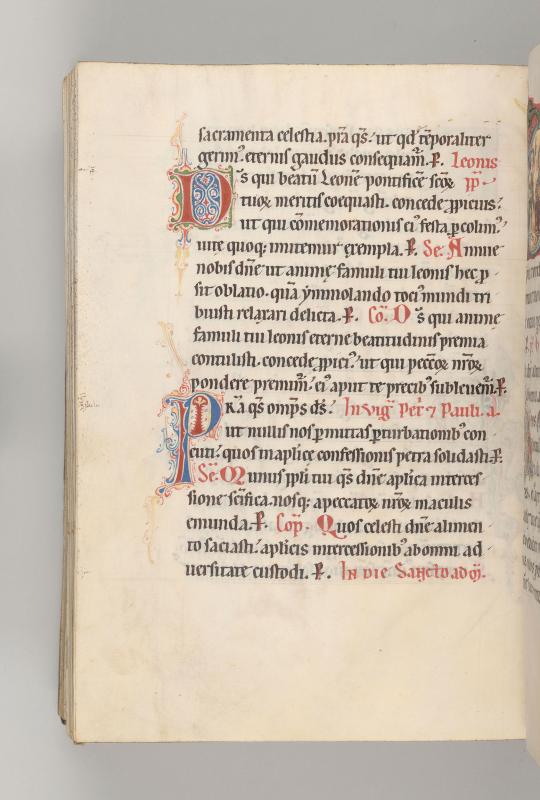 sacramenta celestia. p̄ra q̄s. ut qd' tēporaliter
gerim᷒. eternis gaudiis consequam̄. P. Leonis
D s̄ qui beatū Leonē pontificē scōꝝ pp̄
tuoꝝ meritis coequasti. concede ꝓpicius.
ut qui cōmemorationis ei᷒ festa ꝑcolim᷒.
uite quoq; imitemur exempla. P. Se. Annue
nobis dn̄e ut anime famuli tui leonis hec ꝓ
sit oblatio. quā ẏmmolando toci᷒ mundi tri
buisti relaxari delicta. P. Cō. D s̄ qui anime
famuli tui leonis eterne beatitudinis premia
contulisti. concede ꝓpici᷒. ut qui pecc̄oꝝ nr̄oꝝ
pondere premim̄. ei᷒ aput te precib᷒ subleuem̄. P.
P Rā q̄s omp̄s ds̄. In uig̅ Petꝛ ⁊ Pauli. a.
ut nullis nos ꝑmittas ꝑturbationib᷒ con
cuti. quos in ap̄lice confessionis petra solidasti. P.
Sē. Munus ppl̄i tui q̄s dn̄e ap̄lica interces
sione sc̄ifica. nosq; a peccatoꝝ nr̄oꝝ maculis
emunda. P. Cop̄. Quos celesti dn̄e alimen
to saciasti. ap̄licis intercessionib᷒ ab omni ad
uersitate custodi. P. In die Sancto ad m̄.